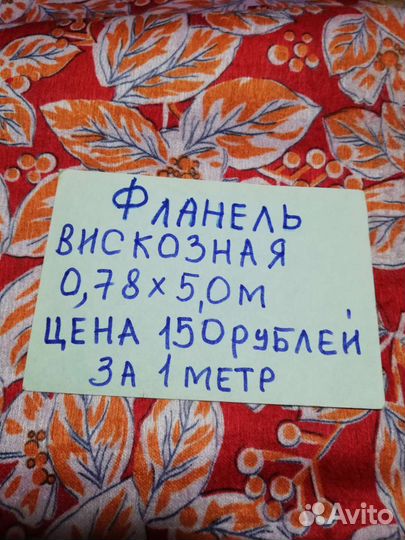 ФЛАНЕЛЬ
ВИСКОЗНАЯ
0,78 × 5,0 М
ЦЕНА 150 РУБЛЕЙ
ЗА 1 МЕТР
Avito